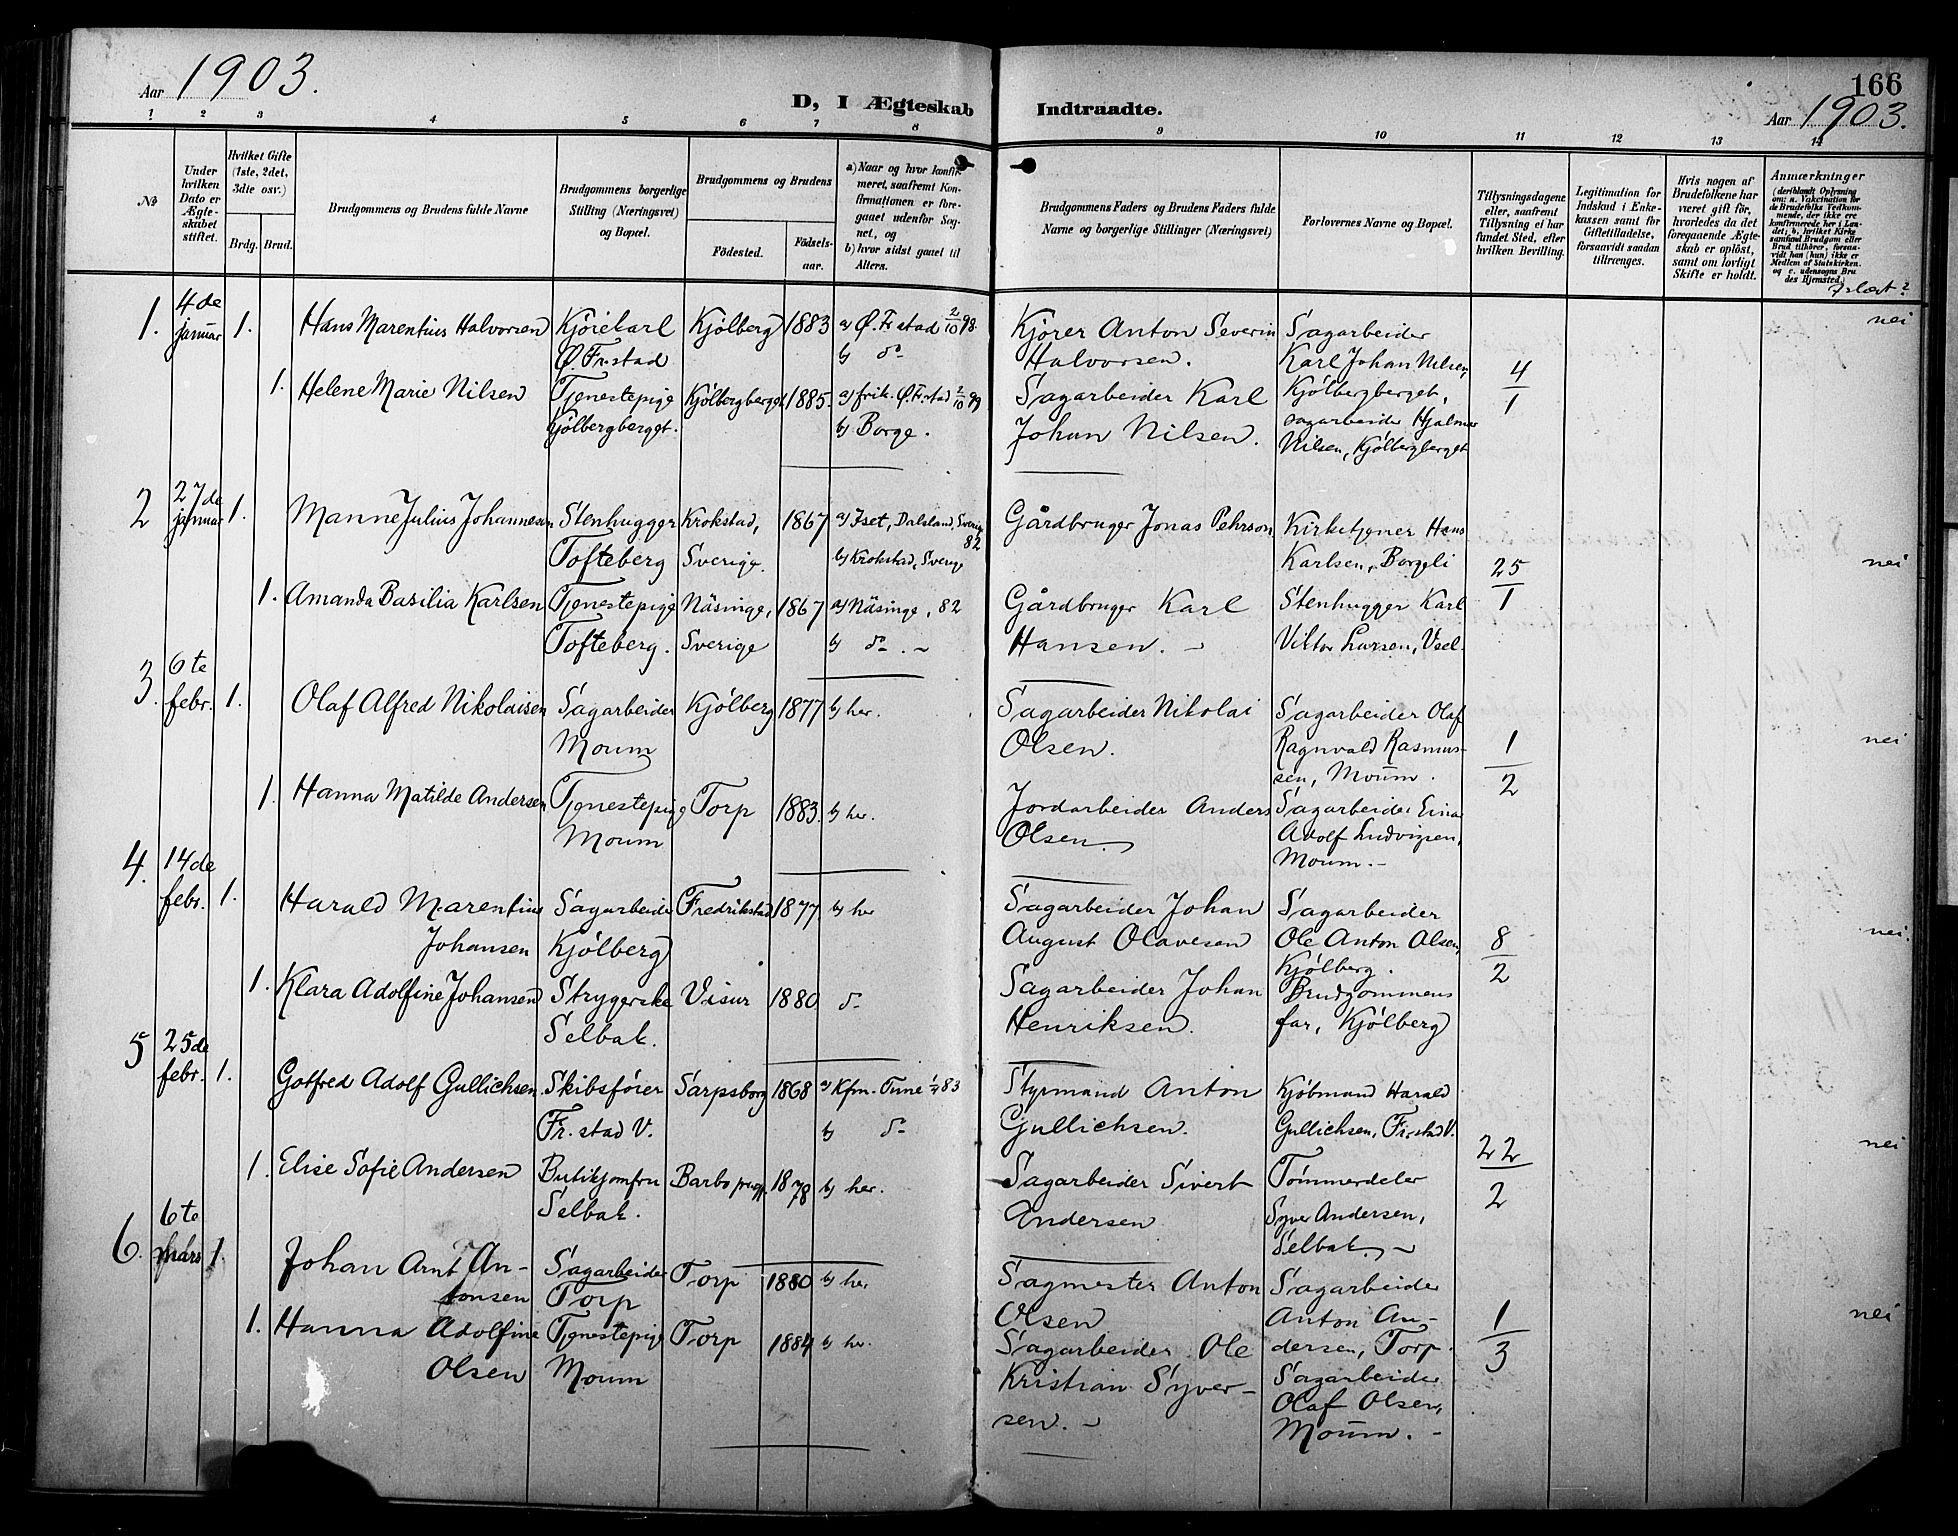 Aar 1903.
D, I Ægteskab Indtraadte.
166
Aar 1903.
1 2 3 4 5 6 7 8 9 10 11 12 13 14
№
Under hvilken Dato er Ægteskabet stiftet.
Hvilket Gifte (1ste, 2det, 3die osv.)
Brdg. Brud.
Brudgommens og Brudens fulde Navne
Brudgommens borgerlige Stilling (Næringsvei) og Bopæl.
Brudgommens og Brudens
Fødested.
Fødsels-aar.
a) Naar og hvor konfirmeret, saafremt Konfirmationen er foregaaet udenfor Sognet, og
b) hvor sidst gaaet til Alters.
Brudgommens Faders og Brudens Faders fulde Navne og borgerlige Stillinger (Næringsvei)
Forlovernes Navne og Bopæl.
Tillysningsdagene eller, saafremt Tillysning ei har fundet Sted, efter hvilken Bevilling.
Legitimation for Indskud i Enkekassen samt for Giftetilladelse, forsaavidt saadan tiltrænges.
Hvis nogen af Brudefolkene har været gift før, hvorledes da det foregaaende Ægteskab er opløst, samt om lovligt Skifte er holdt.
Anmærkninger
(deriblandt Oplysning om: a. Vakcination for de Brudefolks Vedkommende, der ikke ere konfirmerede her i Landet; b. hvilket Kirkesamfund Brudgom eller Brud tilhører, forsaavidt han (hun) ikke er Medlem af Statskirken. og c. udensogns Brudes Hjemsted.)
1. 4de januar 1. Hans Marentius Halvorsen Kjørekarl Ø. Fr.stad Kjølberg 1883 a) Ø. Fr.stad 2/10 98. b) do Kjører Anton Severin Halvorsen. Sagarbeider Karl Johan Nilsen, Kjølbergberget, 4/1 nei
1. Helene Marie Nilsen Tjenestepige Kjølbergberget. Kjølbergberget 1885. a) frik. Ø. Fr.stad 2/10 99 b) Borge. Sagarbeider Karl Johan Nilsen. sagarbeider Hjalmar Nilsen, Kjølbergberget
2 27de januar 1. Manne Julius Johannesen Stenhugger Tofteberg Krokstad, Sverige. 1867 a) Iset, Dalsland, Sverige 82 b) Krokstad, Sverige Gårdbruger Jonas Pehrson Kirketjener Hans Karlsen, Borgeli 25/1 nei
1. Amanda Basilia Karlsen Tjenestepige Tofteberg. Näsinge, Sverige 1867 a) Näsinge, 82 b) do. Gårdbruger Karl Hansen. Stenhugger Karl Viktor Larsen, Veel.
3. 6te febr. 1. Olaf Alfred Nikolaisen Sagarbeider Moum Kjølberg 1877 b) her. Sagarbeider Nikolai Olsen. Sagarbeider Olaf Ragnvald Rasmussen, Moum. 1/2 nei
1. Hanna Matilde Andersen Tjenestepig Moum Torp 1883. b) her. Jordarbeider Anders Olsen. Sagarbeider Einar Adolf Ludvigsen, Moum.
4. 14de febr. 1. Harald Marentius Johansen Sagarbeide Kjølberg Fredrikstad 1877 b) her Sagarbeider Johan August Olavesen Sagarbeider Ole Anton Olsen, Kjølberg. 8/2 nei.
1. Klara Adolfine Johansen Strygerske Selbak. Visur 1880 do Sagarbeider Johan Henriksen. Brudgommens far, Kjølberg
5 25de febr. 1. Gotfred Adolf Gullichsen Skibsfører Fr.stad V. Sarpsborg 1868 a) Kfm. Tune 83 b) do Styrmand Anton Gullichsen. Kjøbmand Harald Gullichsen, Fr.stad V. 22/2 nei
1. Elise Sofie Andersen Butikjomfru Selbak. Barbo 1878 b) her. Sagarbeider Sivert Andersen Tømmerdeler Syver Andersen, Selbak.
6. 6te mars 1. Johan Arnt Antonsen Sagarbeider Torp Torp 1880 b) her Sagmester Anton Olsen Sagarbeider Anton Andersen, Torp. 1/3 nei
1. Hanna Adolfine Olsen Tjenestepige Moum Torp 1884 b) her. Sagarbeider Ole Kristian Syversen. Sagarbeider Olaf Olsen, Moum.